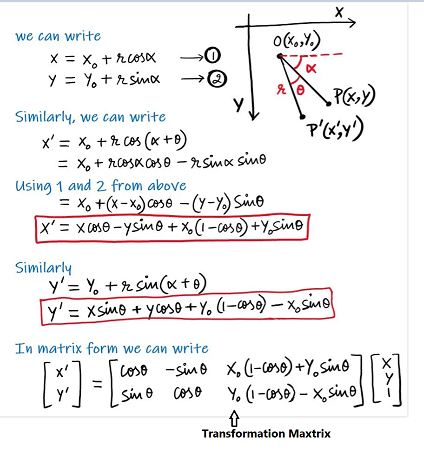 X
we can write
O(X₀,Y₀)
X = X₀ + r cosα → ①
Y = Y₀ + r sinα → ②
α
r θ
P(X,Y)
Y
P'(X',Y')
Similarly, we can write
X' = X₀ + r cos (α+θ)
= X₀ + r cosα cosθ - r sinα sinθ
Using 1 and 2 from above
= X₀ + (X-X₀) cosθ - (Y-Y₀) sinθ
X' = X cosθ - Y sinθ + X₀ (1-cosθ) + Y₀ sinθ
Similarly
Y' = Y₀ + r sin(α+θ)
Y' = X sinθ + Y cosθ + Y₀ (1-cosθ) - X₀ sinθ
In matrix form we can write
[X' Y'] = [cosθ -sinθ X₀ (1-cosθ) + Y₀ sinθ
sinθ cosθ Y₀ (1-cosθ) - X₀ sinθ] [X Y 1]
Transformation Maxtrix